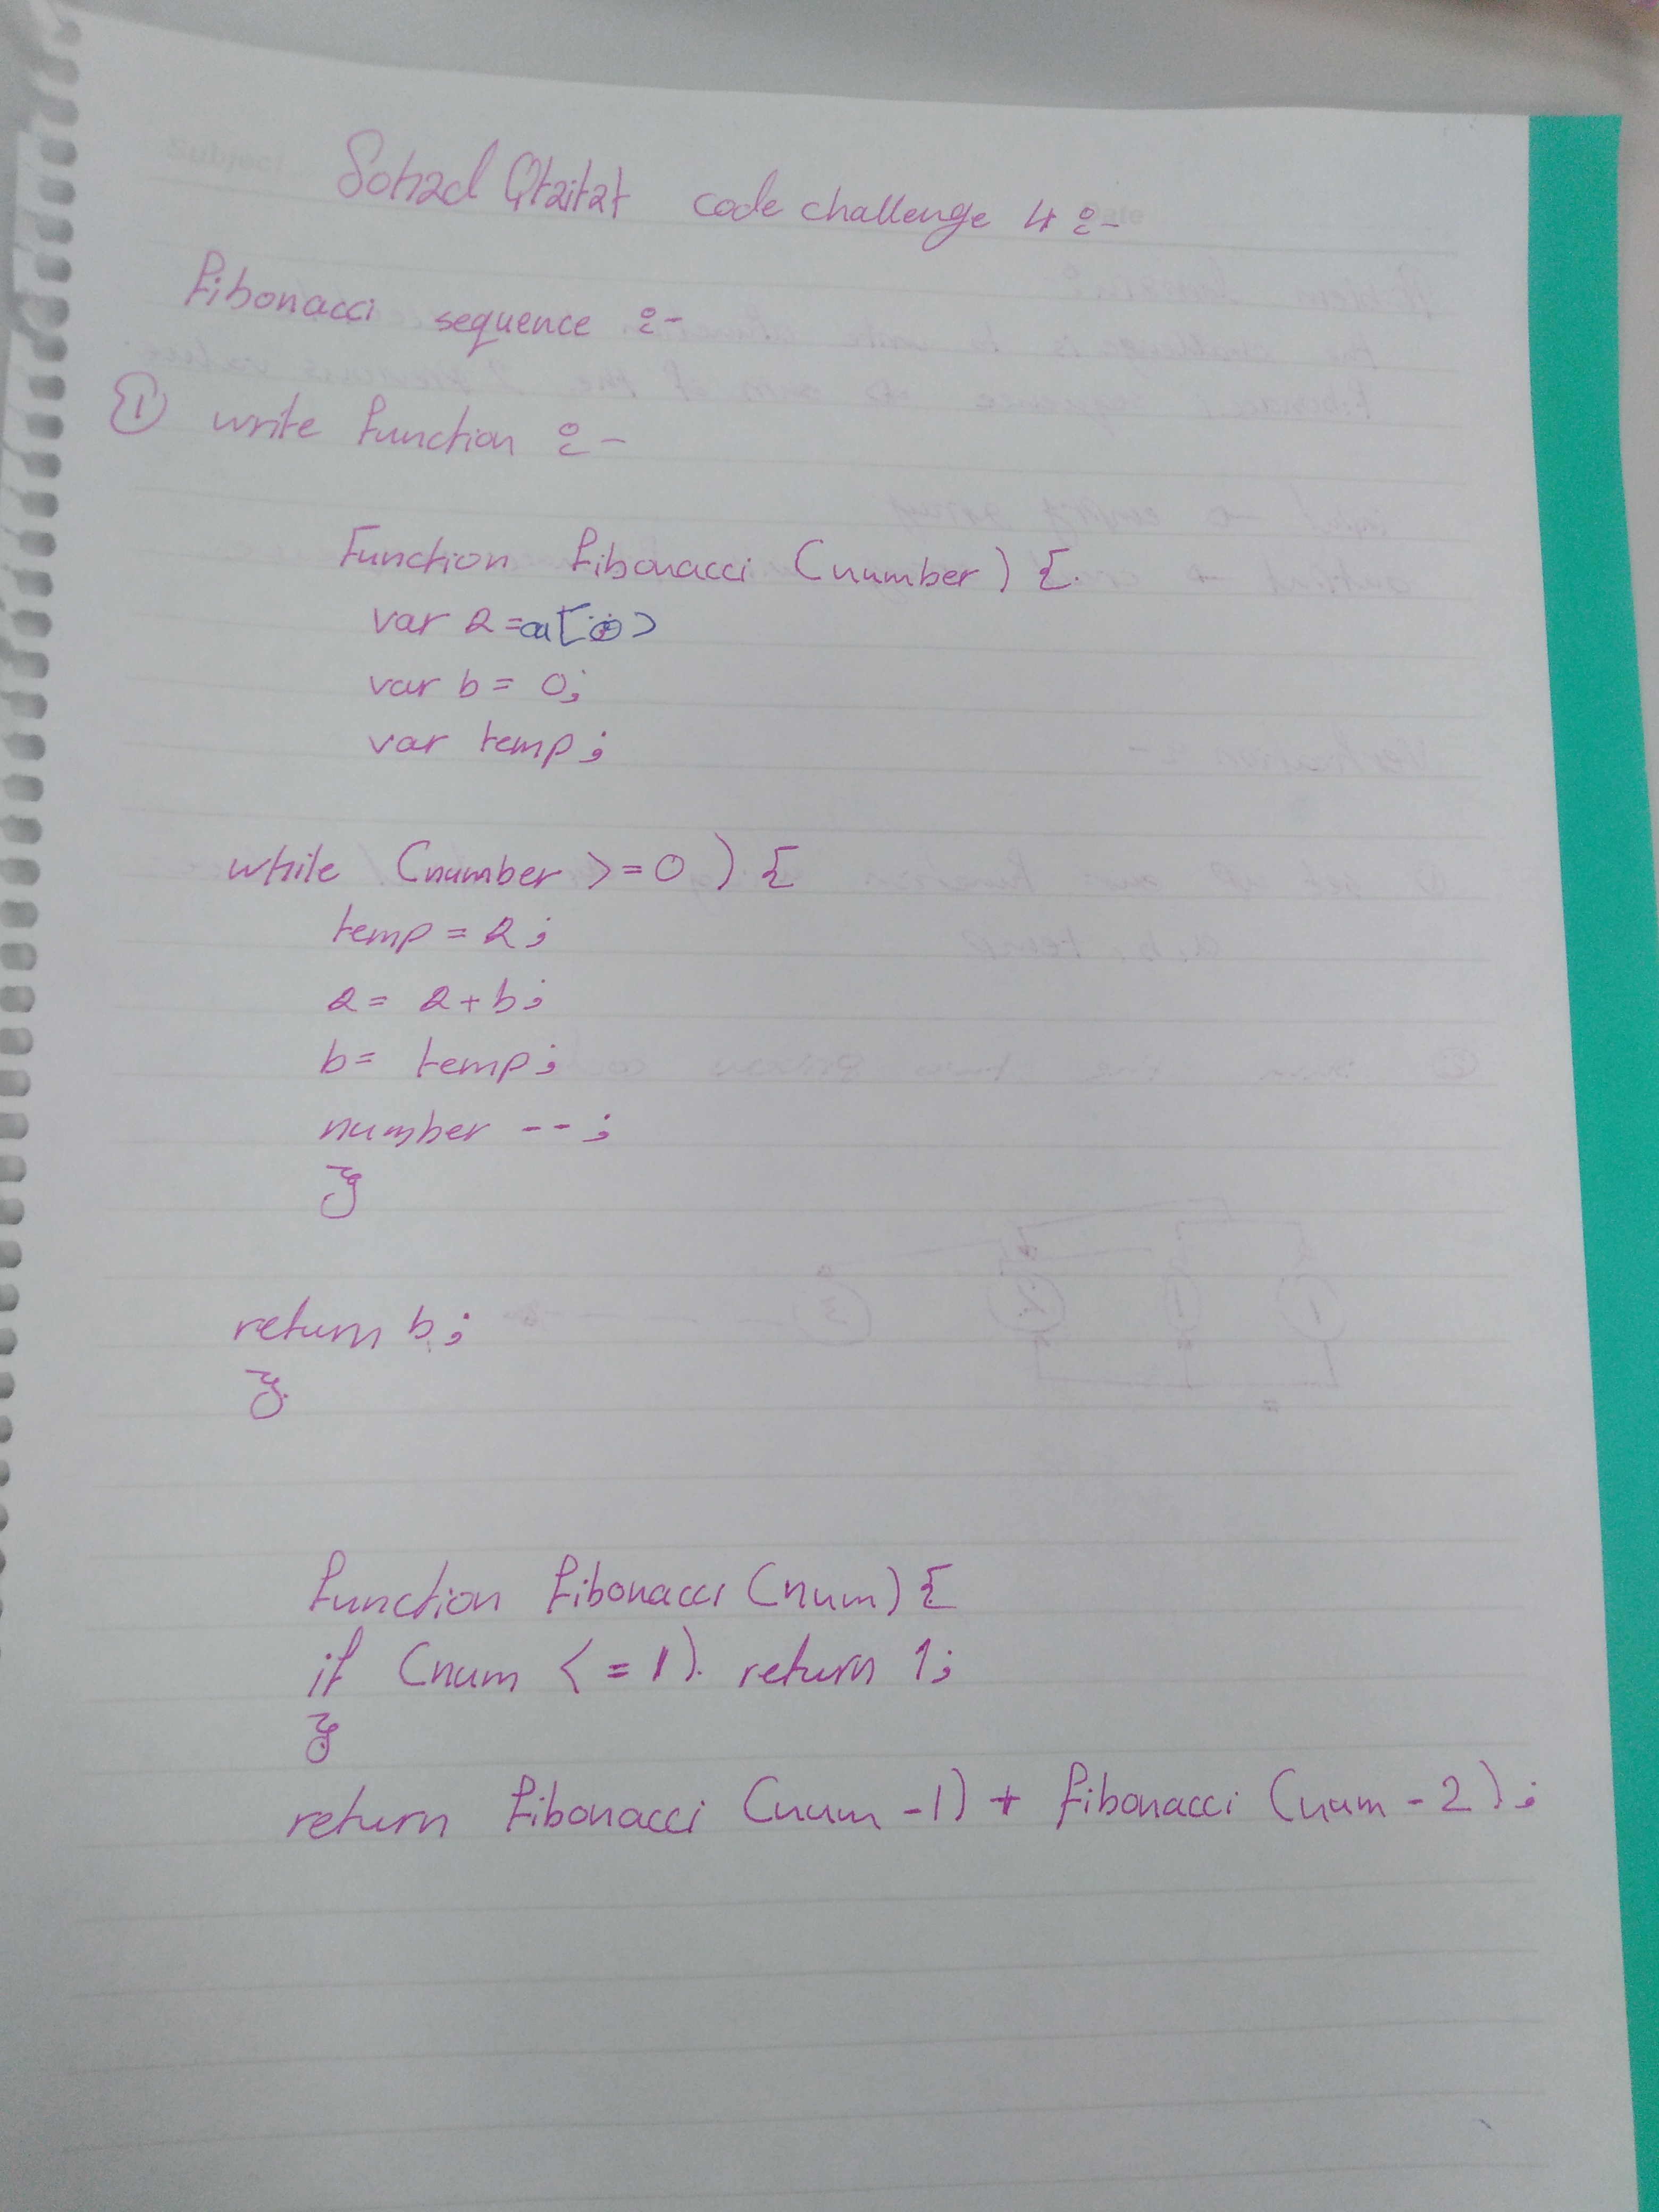 Sohad Qtaitat code challenge 4 :-
Fibonacci sequence :-
① write function :-
Function fibonacci (number) {
var a = a[
var b = 0;
var temp;
while (number >= 0) {
temp = a;
a = a + b;
b = temp;
number --;
}
return b;
}
function fibonacci (num) {
if (num <= 1) return 1;
}
return fibonacci (num - 1) + fibonacci (num - 2);